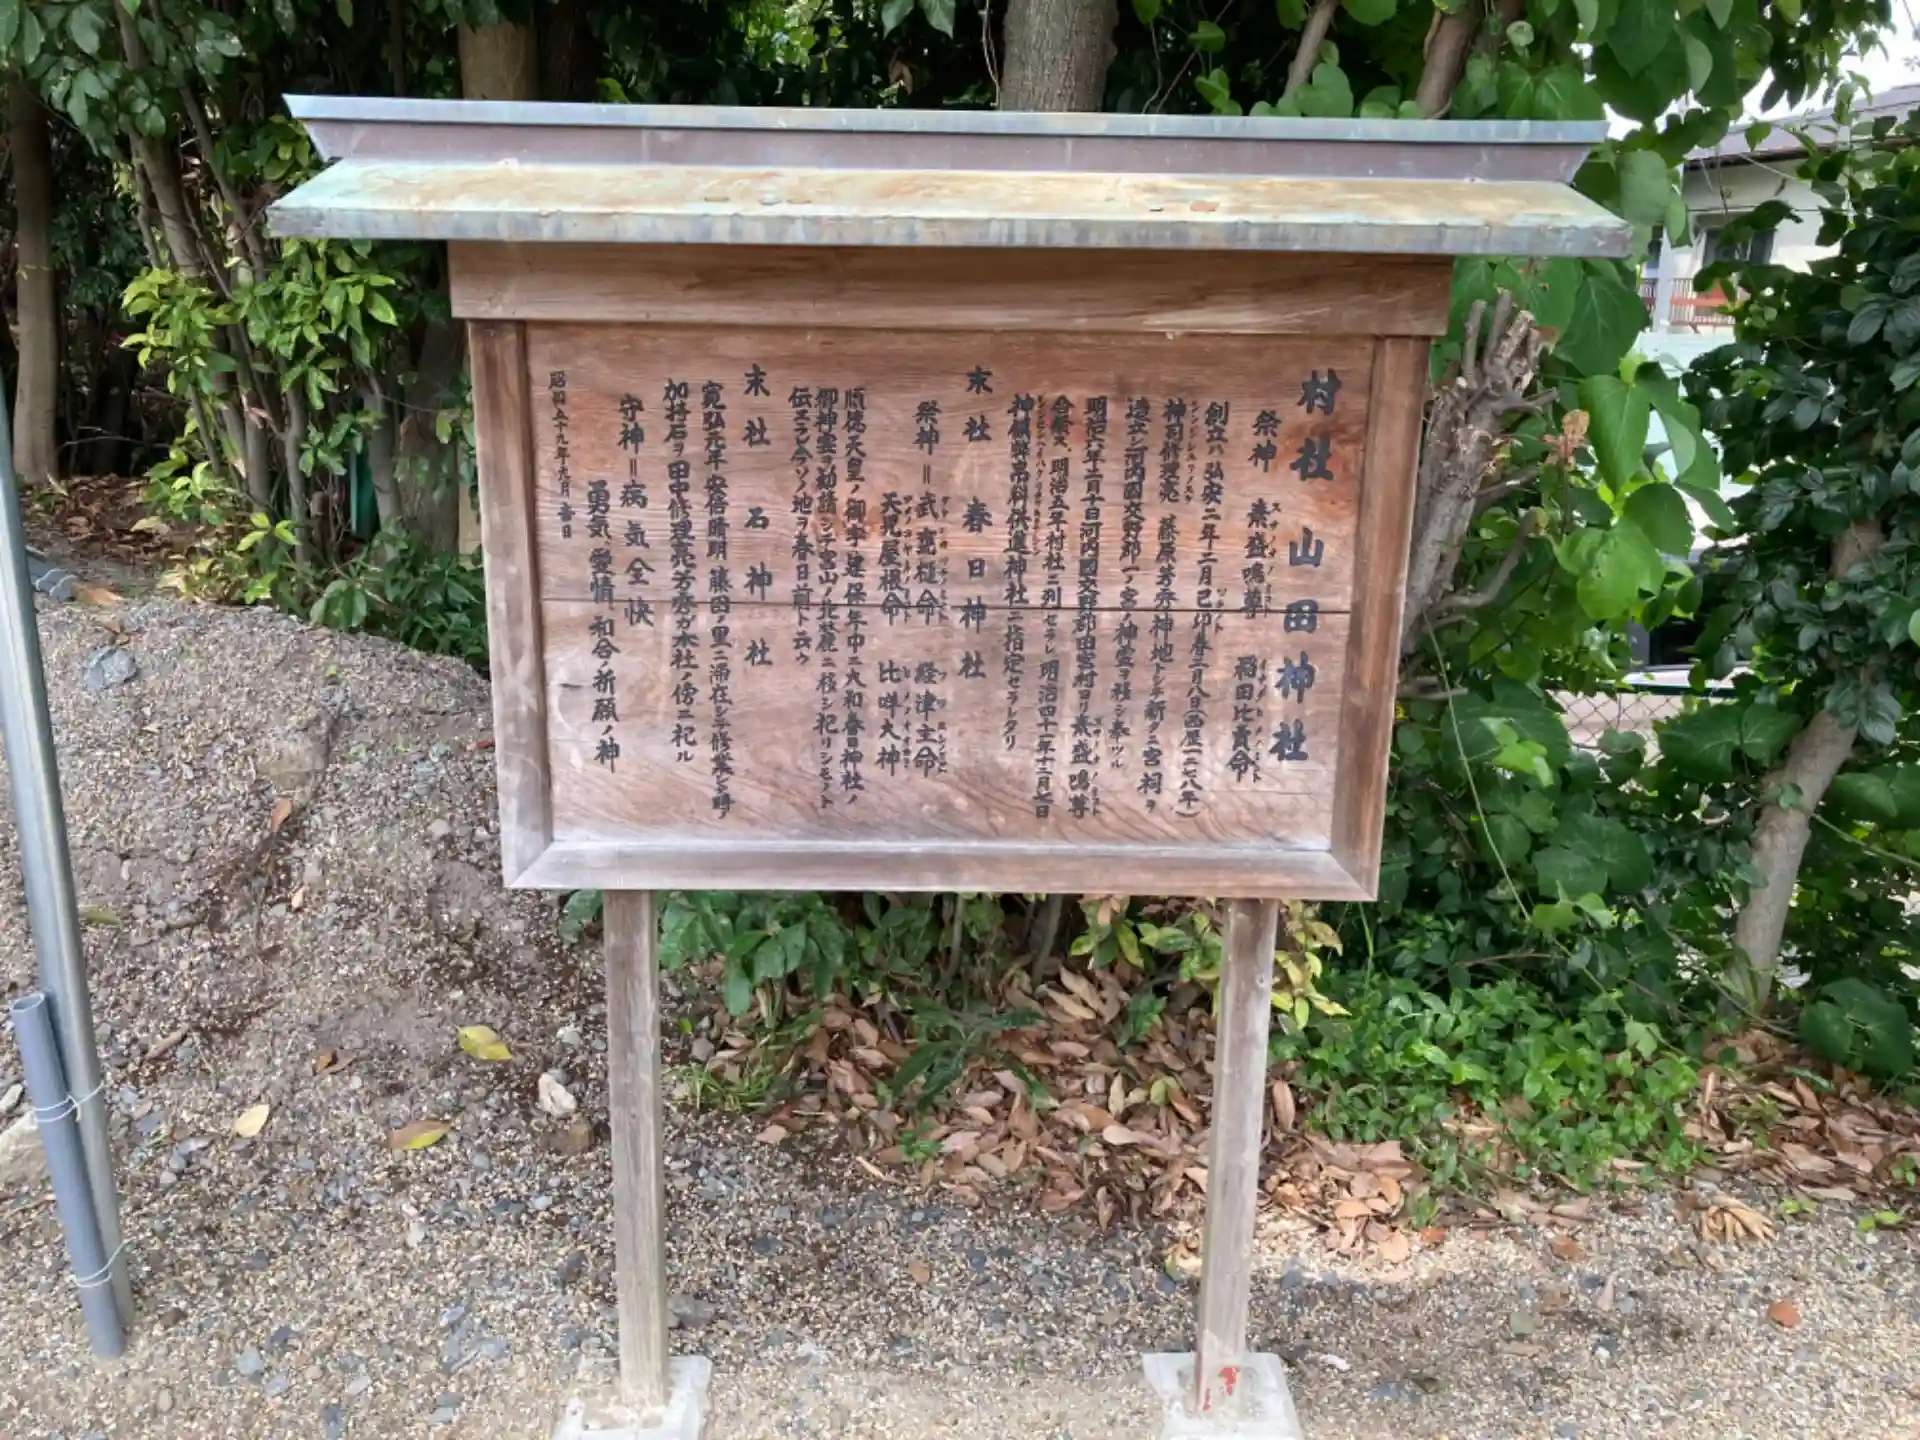 村社 山田神社
祭神 素盛鳴尊 稲田比賣命
創立ハ弘安二年二月已卯春二月八日(西歴一二七八年)
神祠修理亮 藤原芳秀神地トシテ新タニ宮祠ヲ
造立シ河内國交野郡一ノ宮ノ神霊ヲ移シ奉ツル
明治六年二月十日河内國交野郡田宮村ヨリ素盛鳴尊
合祭ス、明治五年村社ニ列セラレ明治四十一年十二月七日
神饌幣帛料供進神社ニ指定セラレタリ
末社 春日神社
祭神=武甕槌命 経津主命
天児屋根命 比咩大神
順徳天皇ノ御宇建保年中ニ大和春日神社ノ
御神霊ヲ勧請シテ宮山ノ北麓ニ移シ祀リシモノト
伝エラレ今ソノ地ヲ春日ヒ前ト云ウ
末社 石神社
寛弘元年安倍晴明 藤田ノ里ニ滞在シテ修業セシ時ノ
加持石ヲ田中修理亮芳秀ガ本社ノ傍ニ祀ル
守神=病気全快
勇気 愛情 和合ノ祈願ノ神
昭和五十九年九月 吉日